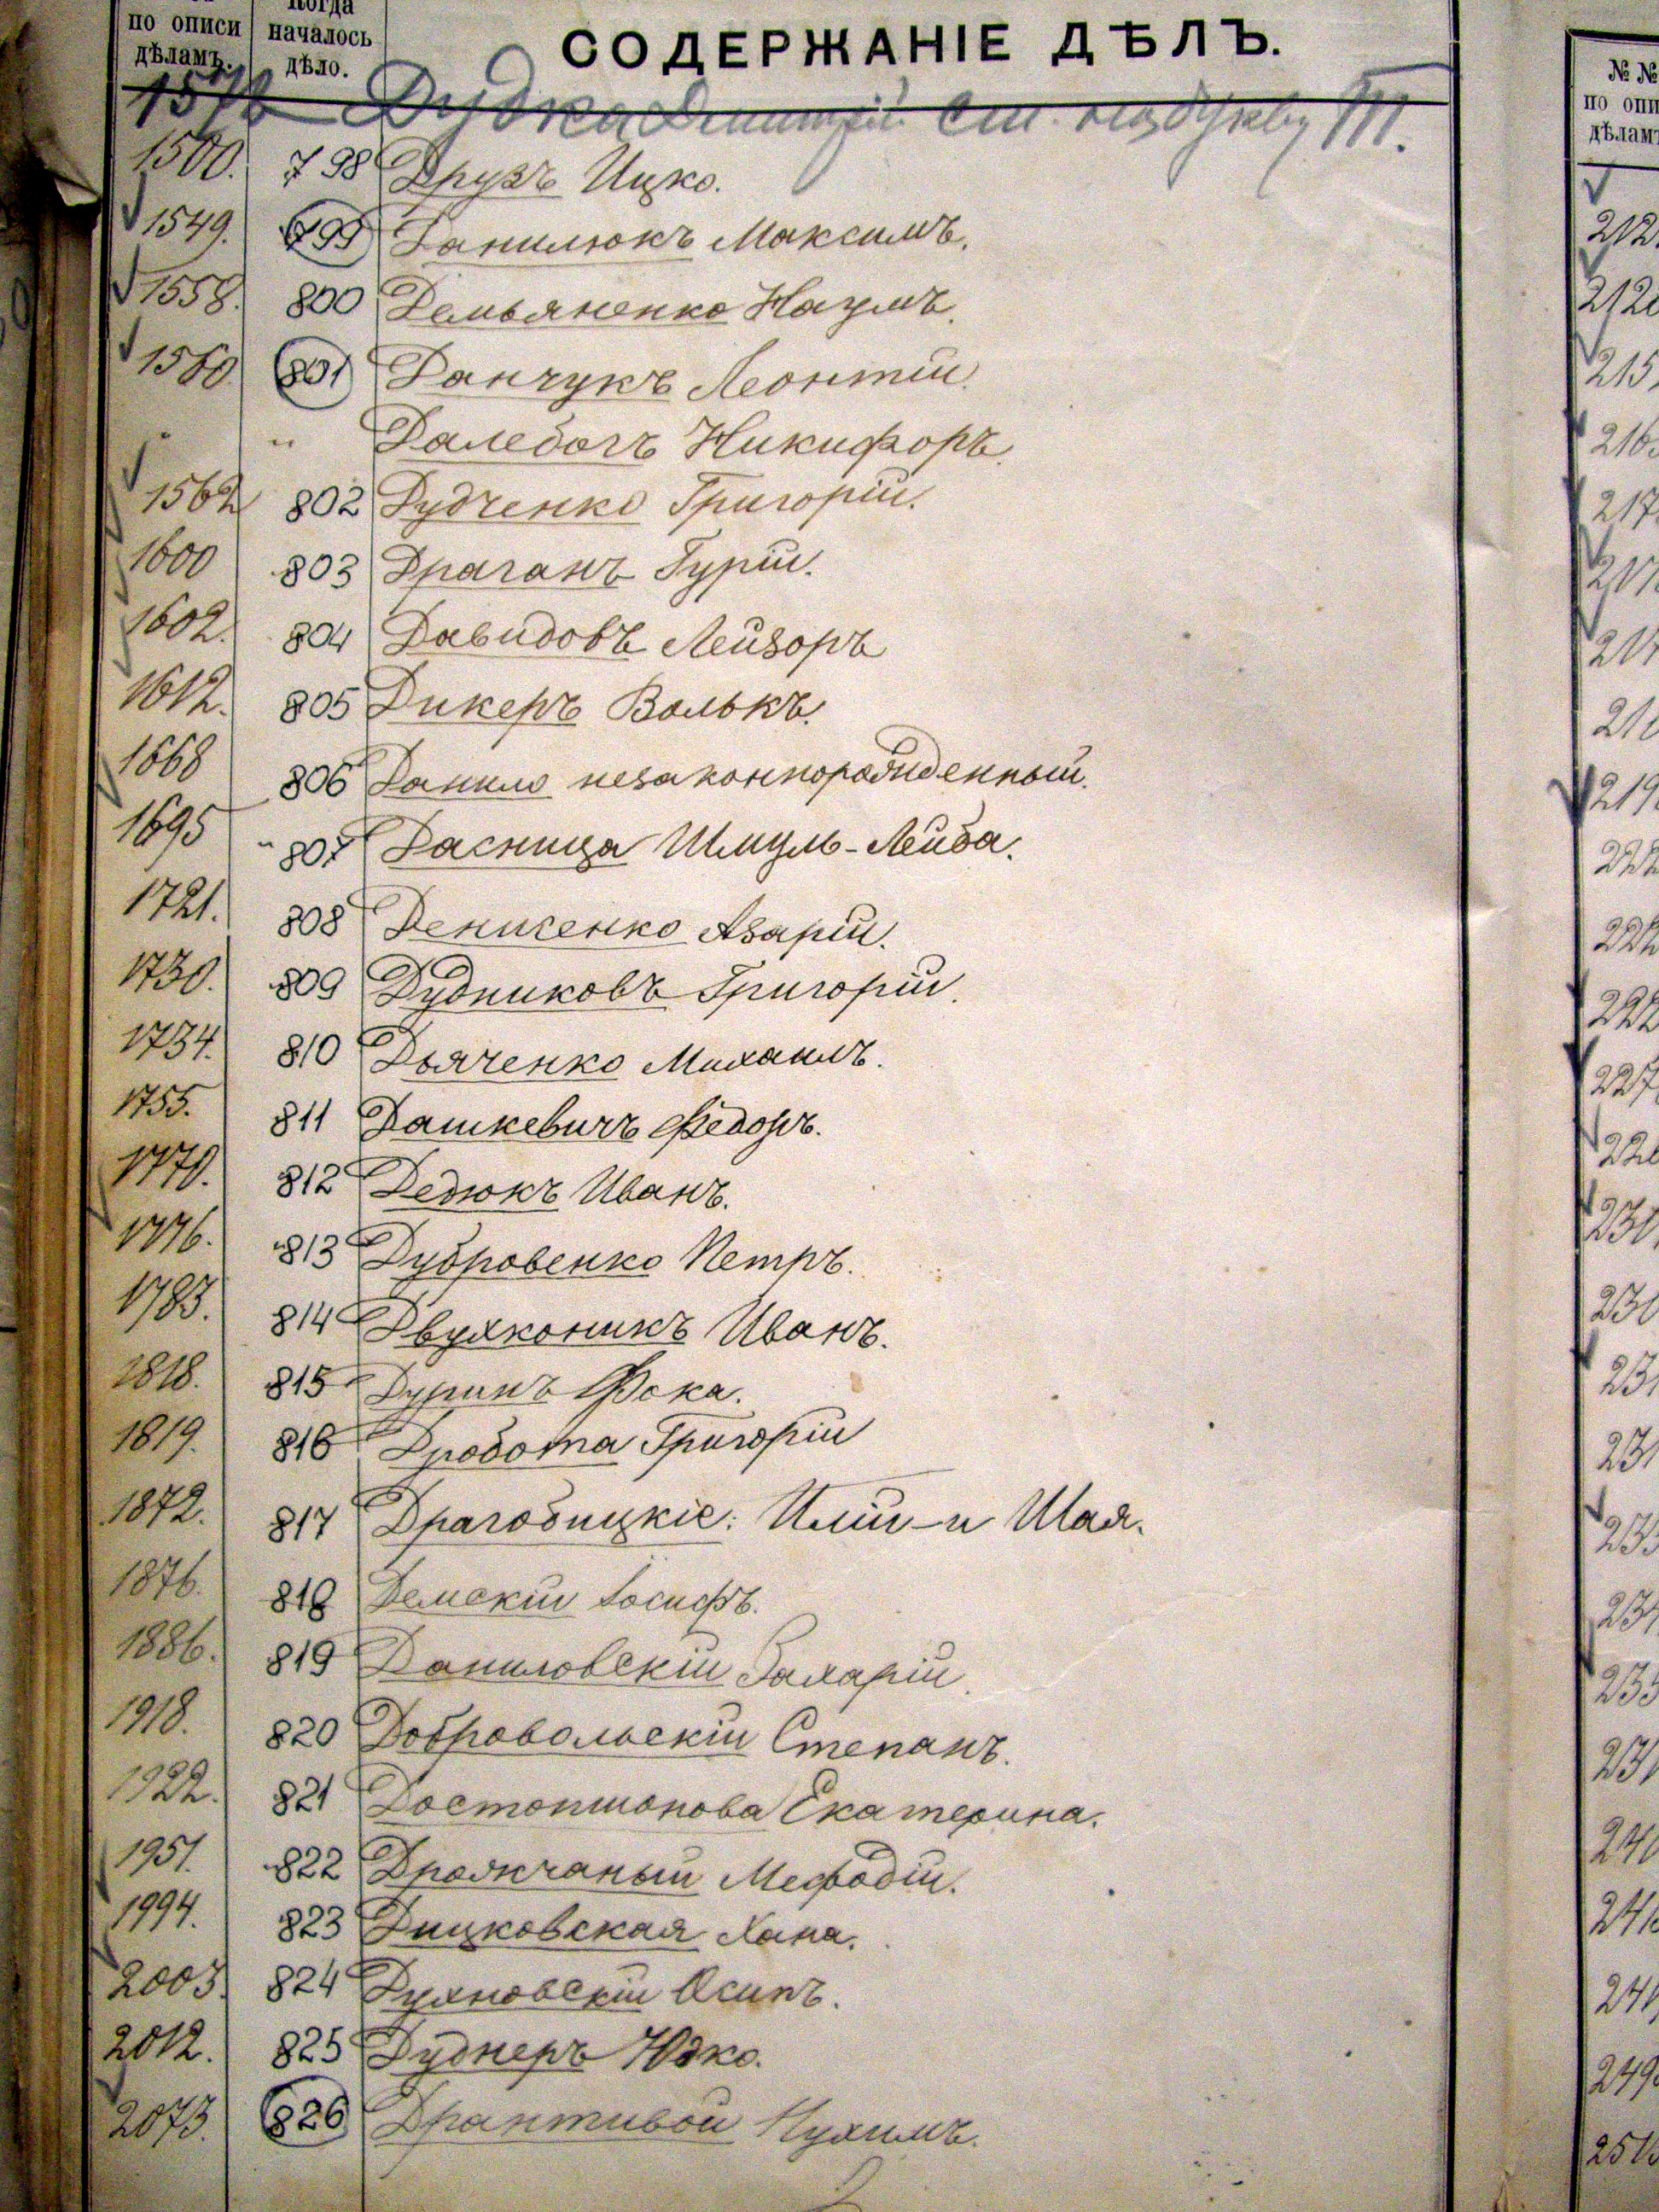 по описи
дѣламъ.
Когда
началось
дѣло.
СОДЕРЖАНІЕ ДѢЛЪ.
Дудка Дмитрій см. на букву Т.
1500. 798 Друзъ Ицко.
1549. 799 Данилюкъ Максимъ.
1558. 800 Демьяненко Наумъ.
1560. 801 Данчукъ Леонтій.
" " Далебогъ Никифоръ.
1562 802 Дудченко Григорій.
1600 803 Драганъ Гурій.
1602. 804 Давидовъ Лейзоръ
1612. 805 Дикеръ Волькъ.
1668 806 Данило незаконнорожденный.
1695 807 Дасница Шмуль-Лейба.
1721. 808 Денисенко Азарій.
1730. 809 Дудниковъ Григорій.
1734. 810 Дьяченко Михаилъ.
1755. 811 Дашкевичъ Федоръ.
1770. 812 Дедюкъ Иванъ.
1776. 813 Дубровенко Петръ.
1783. 814 Двухконикъ Иванъ.
1818. 815 Дуринъ Фока.
1819. 816 Дробота Григорій
1872. 817 Драгобицкіе: Илій-и Шая.
1876. 818 Демскій Іосифъ.
1886. 819 Даниловскій Захарій.
1918. 820 Добровольскій Степанъ.
1922. 821 Екатерина.
1951. 822 Дрожчаный Мефодій.
1994. 823 Дицковская Хана.
2003. 824 Духновскій Осипъ.
2012. 825 Дуднеръ Юзко.
2073. 826 Драптивой Нухимъ.
№ №
по опи
дѣлам